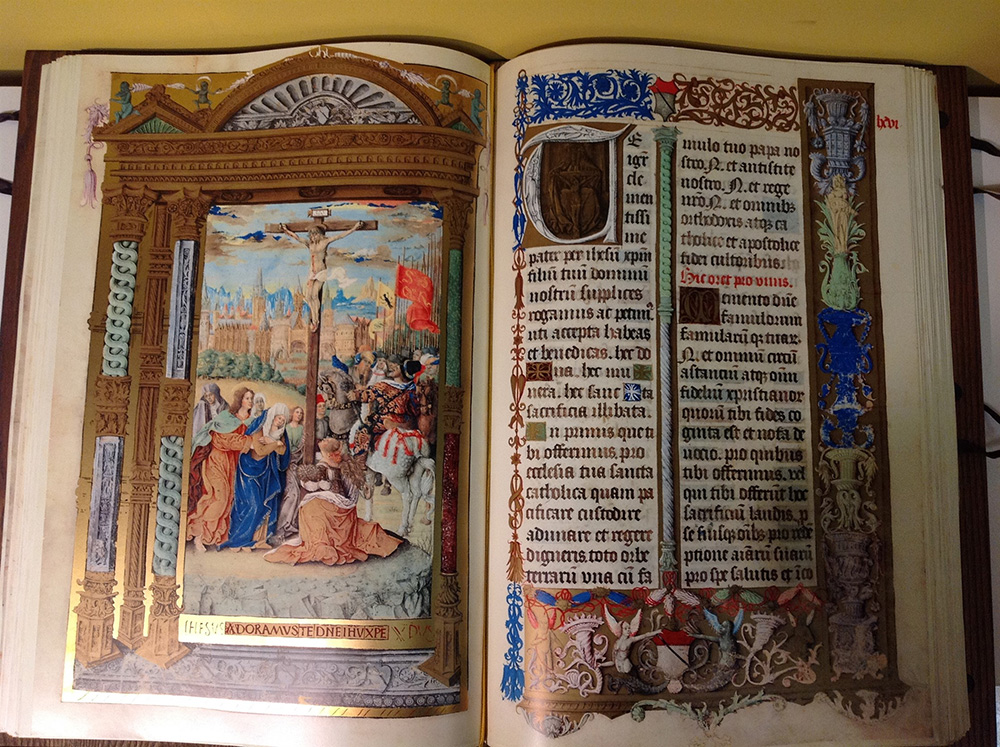 ADORAMVSTEDNEIHVXPE
TE
igit̄
cle
men
tissi
me
pater per ihesū xp̄m
filiū tuū dominū
nostrū supplices
rogamus ac petim⁹
uti accepta habeas
et benedicas. hec do
na. hec mu
nera. hec sancta
sacrificia illibata.
In primis que ti
bi offerimus. pro
ecclesia tua sancta
catholica quam pa
cificare custodire
adunare et regere
digneris. toto orbe
terrarū vna cū fa
mulo tuo papa no
stro. N. et antistite
nostro. N. et rege
nr̄o. N. et omnibꝫ
orthodoxis atqꝫ ca
tholice et apostolice
fidei cultoribus.
Hic oret pro viuis.
Memento dn̄e
famulorum
famularū qꝫ tuaꝝ.
N. et omniū circū
astanciū atqꝫ om̄
fidelium xpristianoꝝ
quorū tibi fides co
gnita est et nota de
uocio. pro quibus
tibi offerimus. vel
qui tibi offerūt hoc
sacrificiū laudis. p
se suisqꝫ oībꝫ pro rede
ptione aīarū suarū
pro spe salutis et īco